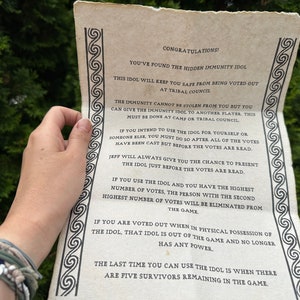 CONGRATULATIONS!
YOU'VE FOUND THE HIDDEN IMMUNITY IDOL
THIS IDOL WILL KEEP YOU SAFE FROM BEING VOTED OUT
AT TRIBAL COUNCIL.
THE IMMUNITY CANNOT BE STOLEN FROM YOU BUT YOU
CAN GIVE THE IMMUNITY IDOL TO ANOTHER PLAYER. THIS
MUST BE DONE AT CAMP OR TRIBAL COUNCIL.
IF YOU INTEND TO USE THE IDOL FOR YOURSELF OR
SOMEONE ELSE, YOU MUST DO SO AFTER ALL OF THE VOTES
HAVE BEEN CAST BUT BEFORE THE VOTES ARE READ.
JEFF WILL ALWAYS GIVE YOU THE CHANCE TO PRESENT
THE IDOL JUST BEFORE THE VOTES ARE READ.
IF YOU USE THE IDOL AND YOU HAVE THE HIGHEST
NUMBER OF VOTES, THE PERSON WITH THE SECOND
HIGHEST NUMBER OF VOTES WILL BE ELIMINATED FROM
THE GAME.
IF YOU ARE VOTED OUT WHEN IN PHYSICAL POSSESSION OF
THE IDOL, THAT IDOL IS OUT OF THE GAME AND NO LONGER
HAS ANY POWER.
THE LAST TIME YOU CAN USE THE IDOL IS WHEN THERE
ARE FIVE SURVIVORS REMAINING IN THE GAME.